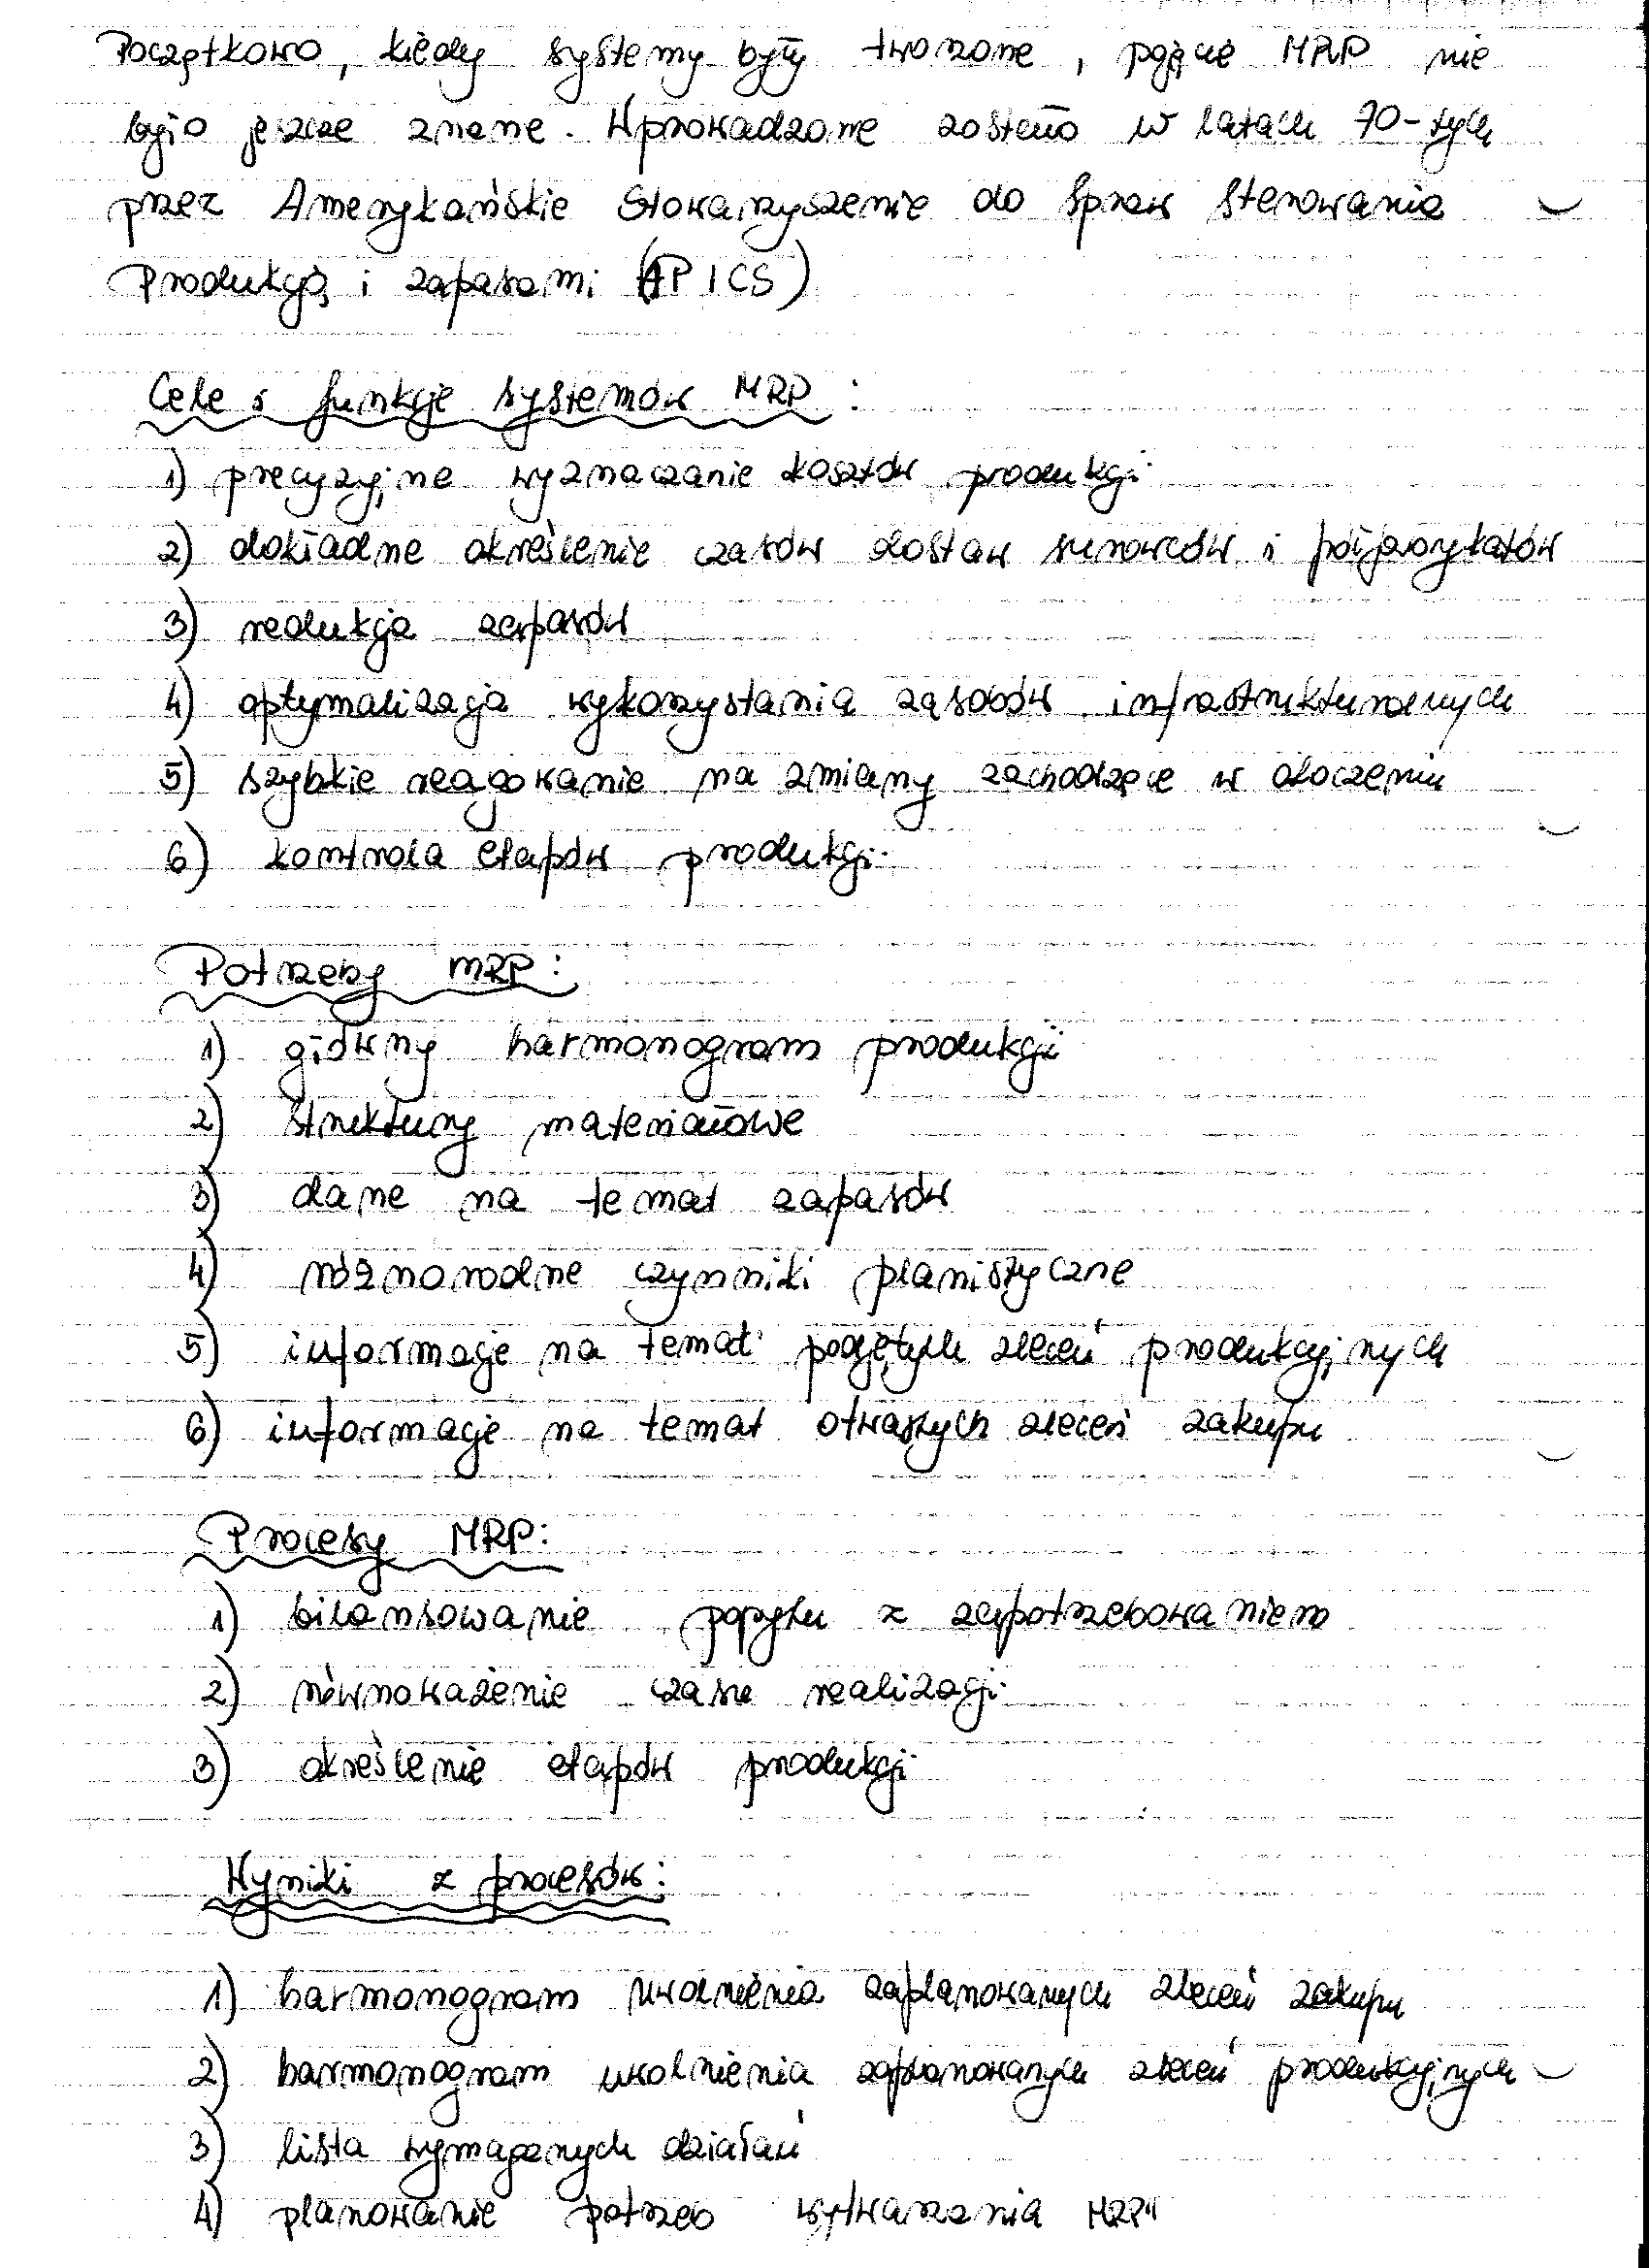 Początkowo, kiedy systemy były tworzone, pojęcie MRP nie
było jeszcze znane. Wprowadzone zostało w latach 70-tych
przez Amerykańskie Stowarzyszenie do Spraw Sterowania
Produkcją i zapasami (APICS)
Cele i funkcje systemów MRP:
1) precyzyjne wyznaczanie kosztów produkcji
2) dokładne określenie czasów dostaw surowców i półfabrykatów
3) redukcja zapasów
4) optymalizacja wykorzystania zasobów infrastrukturalnych
5) szybkie reagowanie na zmiany zachodzące w otoczeniu
6) kontrola etapów produkcji
Potrzeby MRP:
1) główny harmonogram produkcji
2) struktury materiałowe
3) dane na temat zapasów
4) różnorodne czynniki planistyczne
5) informacje na temat podjętych zleceń produkcyjnych
6) informacje na temat otwartych zleceń zakupu
Procesy MRP:
1) bilansowanie popytu z zapotrzebowaniem
2) równoważenie czasu realizacji
3) określenie etapów produkcji
Wyniki z procesów:
1) harmonogram uwolnienia zaplanowanych zleceń zakupu
2) harmonogram uwolnienia zaplanowanych zleceń produkcyjnych
3) lista wymaganych działań
4) planowanie potrzeb wytwarzania MRP"